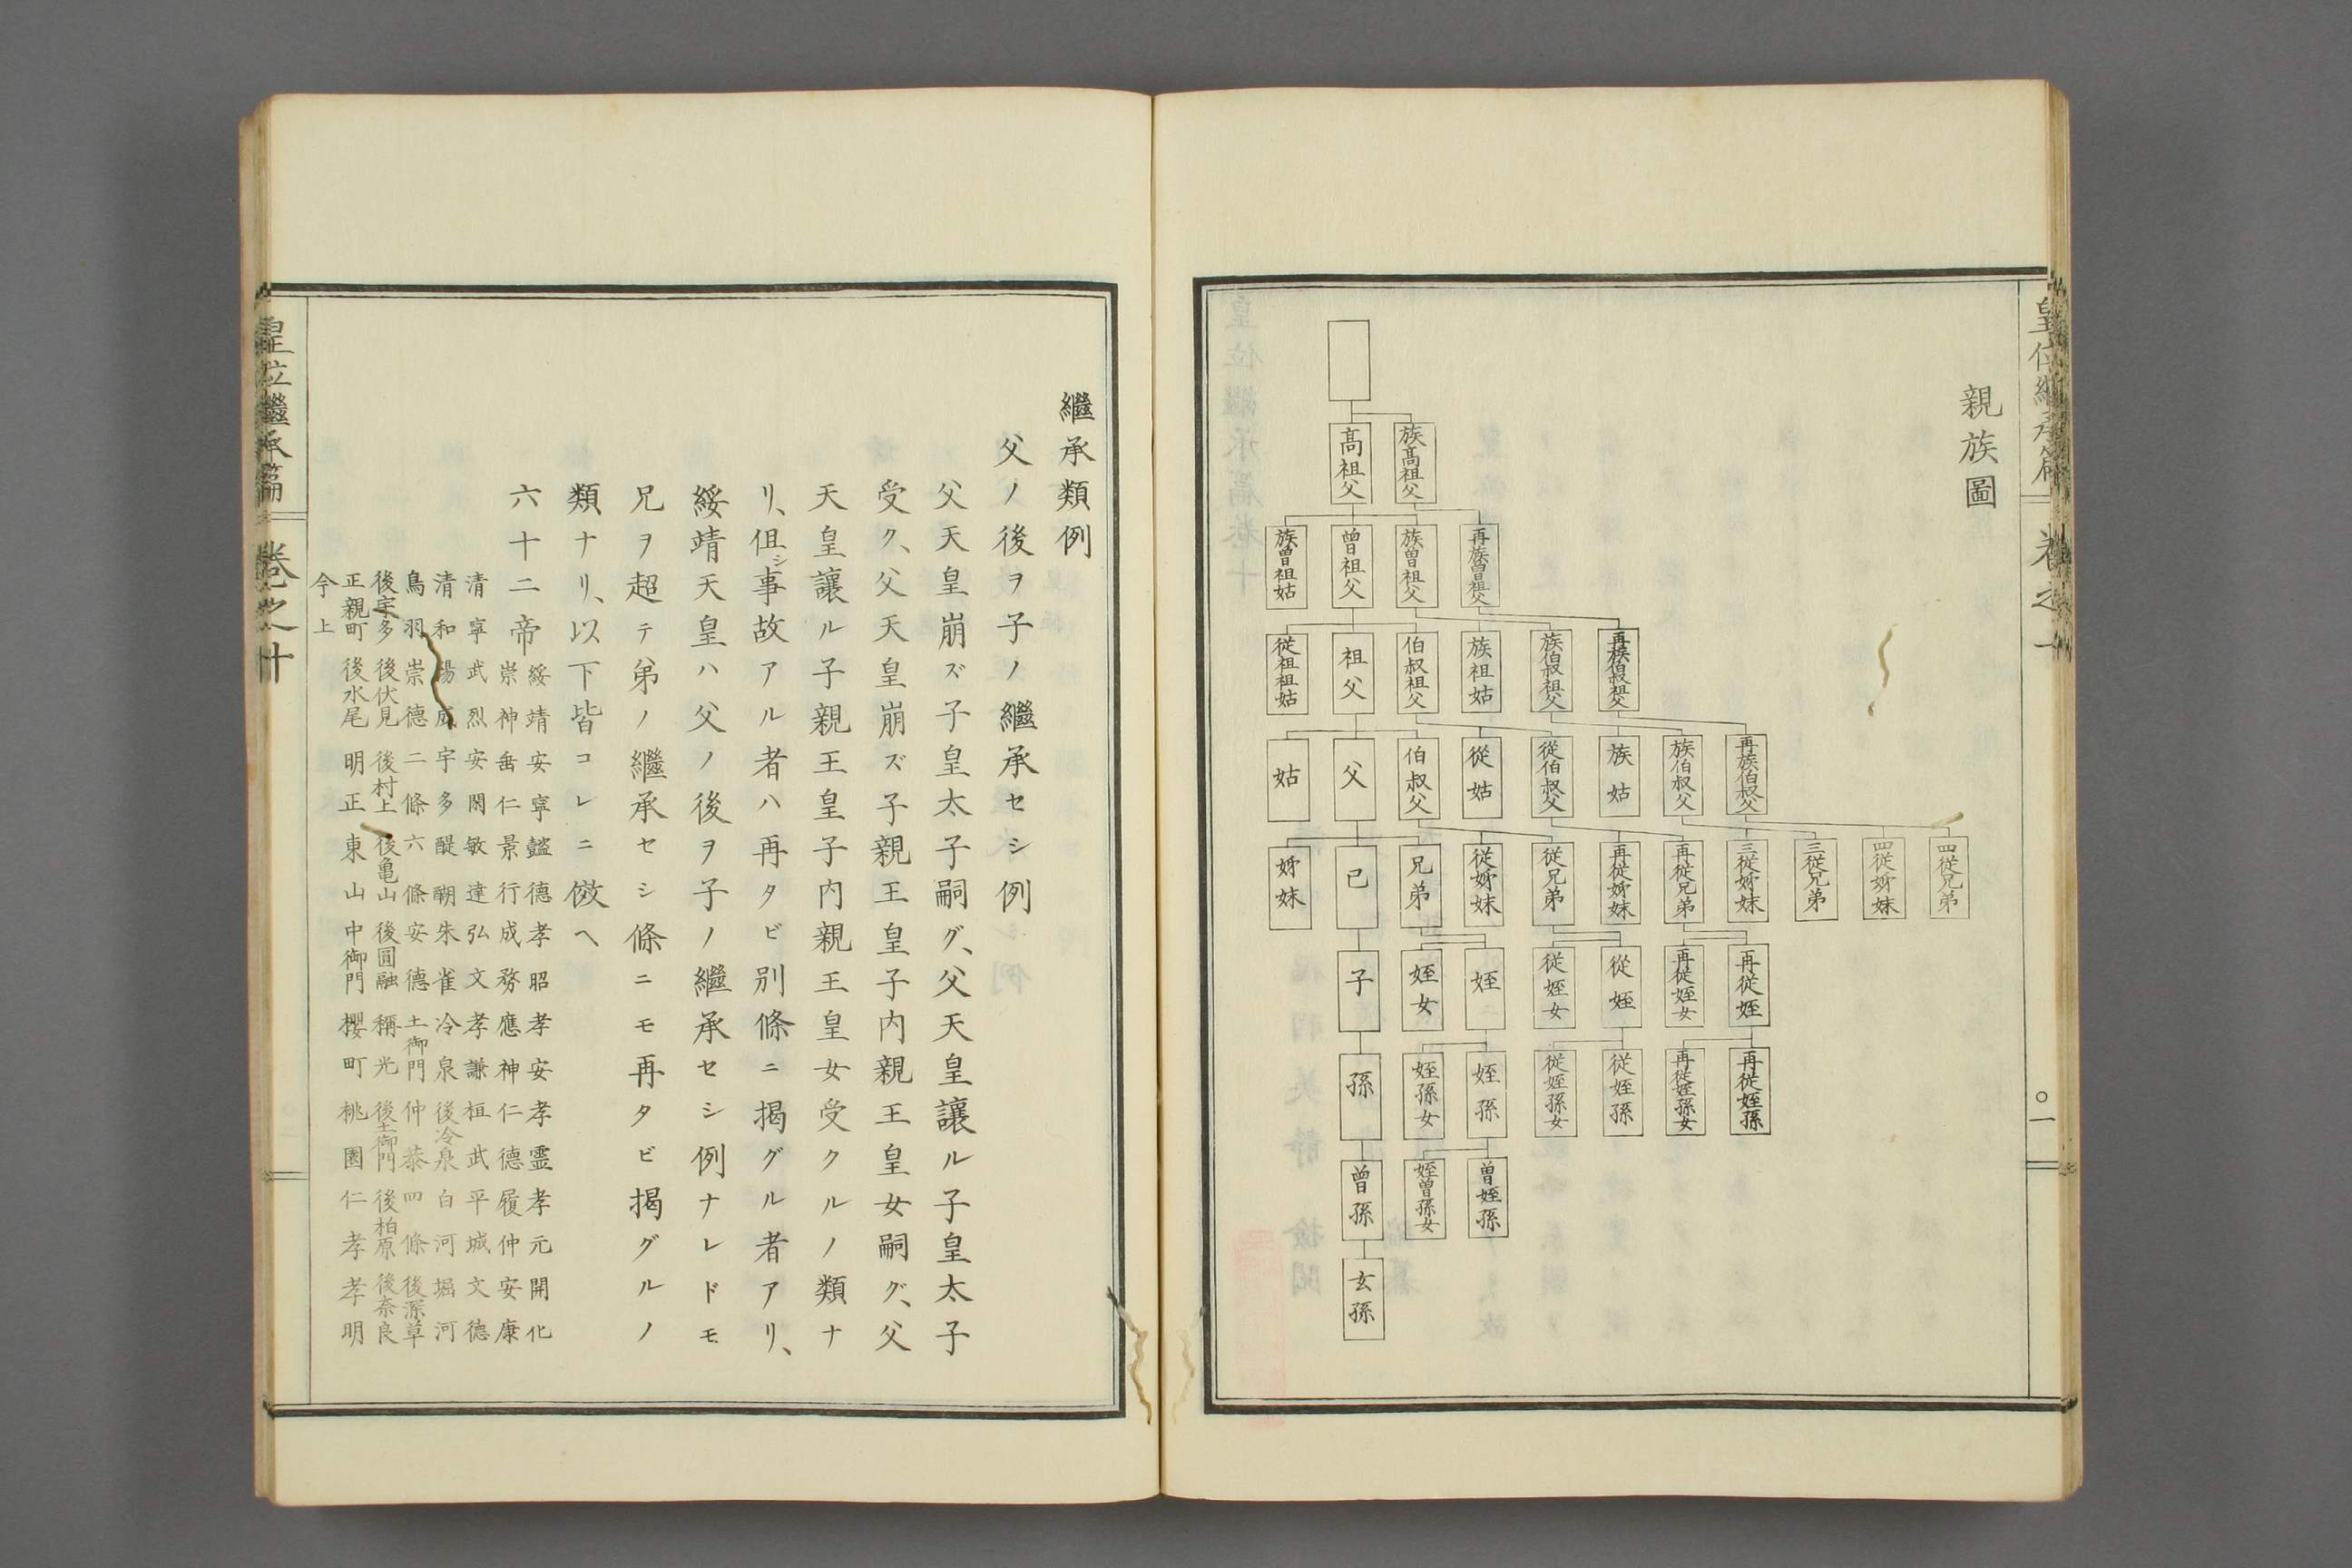 皇位繼承篇 卷之十 〇一
親族圖
高祖父 族高祖父
族曾祖姑 曾祖父 族曾祖父 再族曾祖父
從祖祖姑 祖父 伯叔祖父 族祖姑 族伯叔祖父 再族伯叔祖父
姑 父 伯叔父 從姑 從伯叔父 族姑 族伯叔父 再族伯叔父
姊妹 己 兄弟 從姊妹 從兄弟 再從姊妹 再從兄弟 三從姊妹 三從兄弟 四從姊妹 四從兄弟
子 姪女 姪 從姪女 從姪 再從姪女 再從姪
孫 姪孫女 姪孫 從姪孫女 從姪孫 再從姪孫女 再從姪孫
曾孫 姪曾孫女 曽姪孫
玄孫
繼承類例
父ノ後ヲ子ノ繼承セシ例
父天皇崩ズ子皇太子嗣グ、父天皇讓ル子皇太子
受ク、父天皇崩ズ子親王皇子内親王皇女嗣グ、父
天皇讓ル子親王皇子内親王皇女受クルノ類ナ
リ、但シ事故アル者ハ再タビ別條ニ揭グル者アリ、
綏靖天皇ハ父ノ後ヲ子ノ繼承セシ例ナレドモ
兄ヲ超テ弟ノ繼承セシ條ニモ再タビ揭グルノ
類ナリ、以下皆コレニ倣ヘ
六十二帝
綏靖 安寧 懿德 孝昭 孝安 孝靈 孝元 開化
崇神 垂仁 景行 成務 應神 仁德 履仲 安康
清寧 武烈 安閑 敏達 弘文 孝謙 桓武 平城 文德
清和 陽成 宇多 醍醐 朱雀 冷泉 後冷泉 白河 堀河
鳥羽 崇德 二條 六條 安德 土御門 仲恭 四條 後深草
後宇多 後伏見 後村上 後亀山 後圓融 稱光 後土御門 後柏原 後奈良
正親町 後水尾 明正 東山 中御門 櫻町 桃園 仁孝 孝明
今上
皇位繼承篇 卷之十